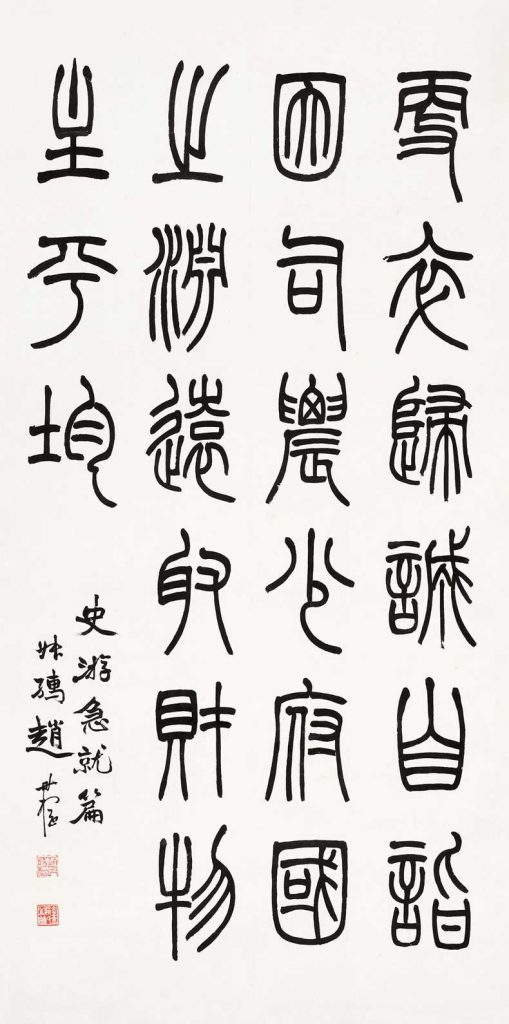 更卒歸誠自詣
因司農少府國
之淵遠取財物
主平均
史游急就篇
叔孺趙時棡